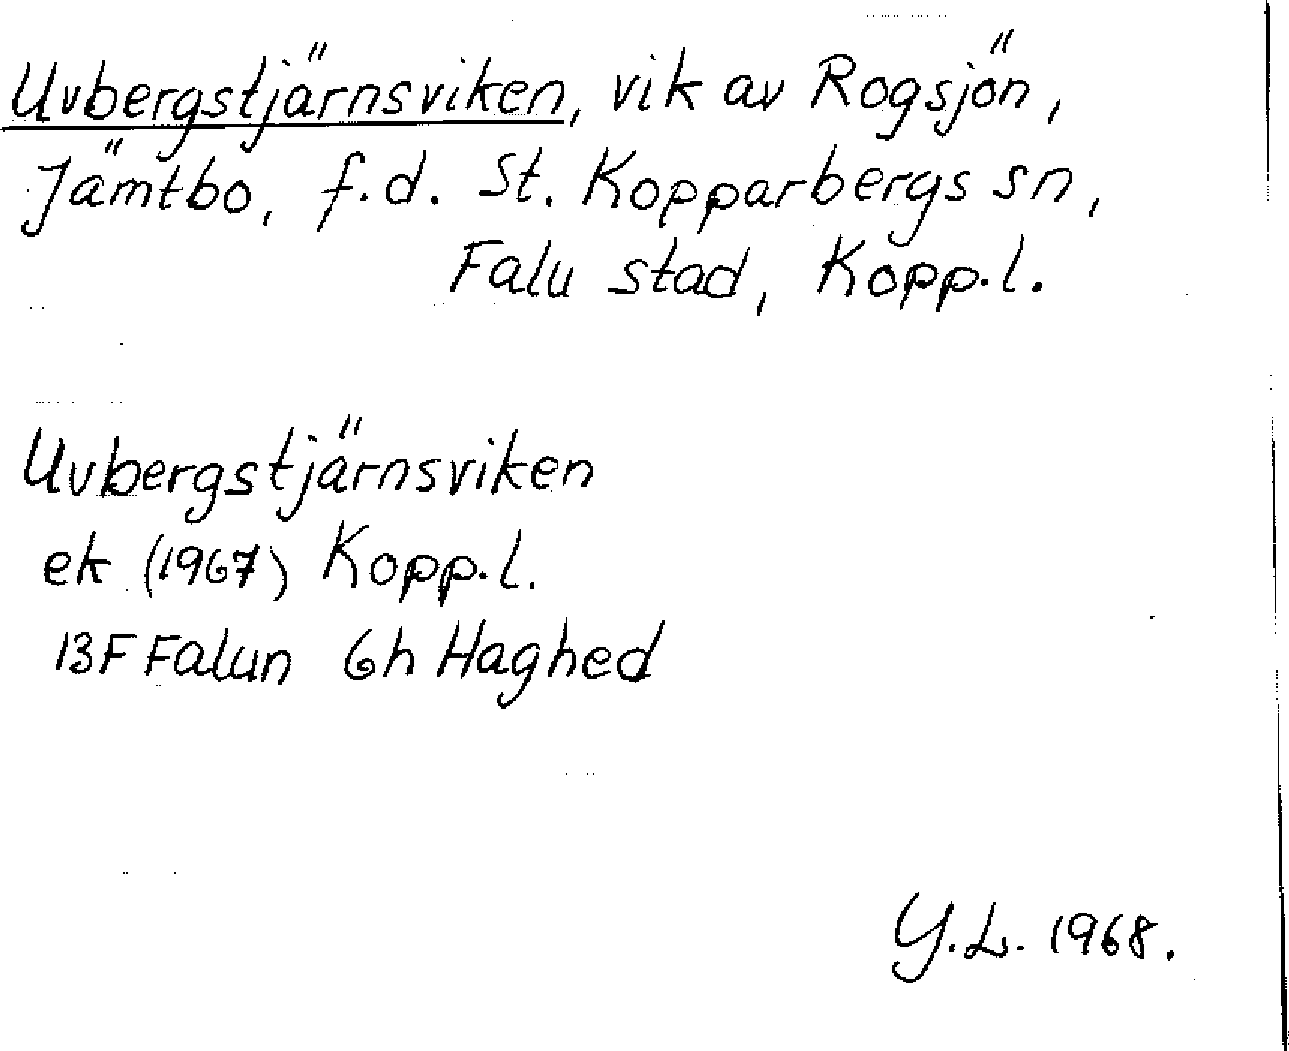 Uvbergstjärnsviken, vik av Rogsjön,
Jämtbo, f.d. St. Kopparbergs sn,
Falu stad, Kopp.l.
Uvbergstjärnsviken
ek (1967) Kopp.l.
13F Falun 6h Haghed
Y.L. 1968.